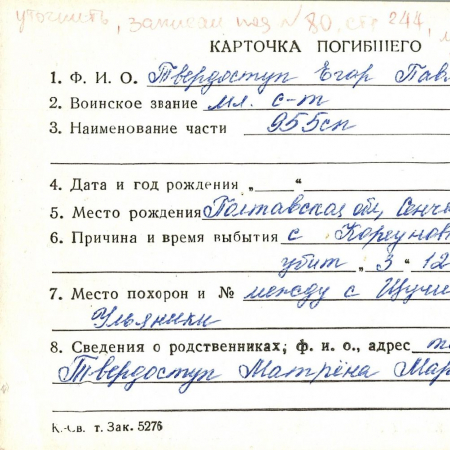 уточнить, записан под № 80. стр 244,
КАРТОЧКА ПОГИБШЕГО
1. Ф. И. О. Твердоступ Егор Павл
2. Воинское звание мл. с-т
3. Наименование части 955сп
4. Дата и год рождения „ “
5. Место рождения Полтавская обл, Сенч
6. Причина и время выбытия с Коргунов
убит „ 3 “ 12
7. Место похорон и № между с Щучи
Ульяники
8. Сведения о родственниках; ф. и. о., адрес
Твердоступ Матрёна Мар
т. Зак. 5276